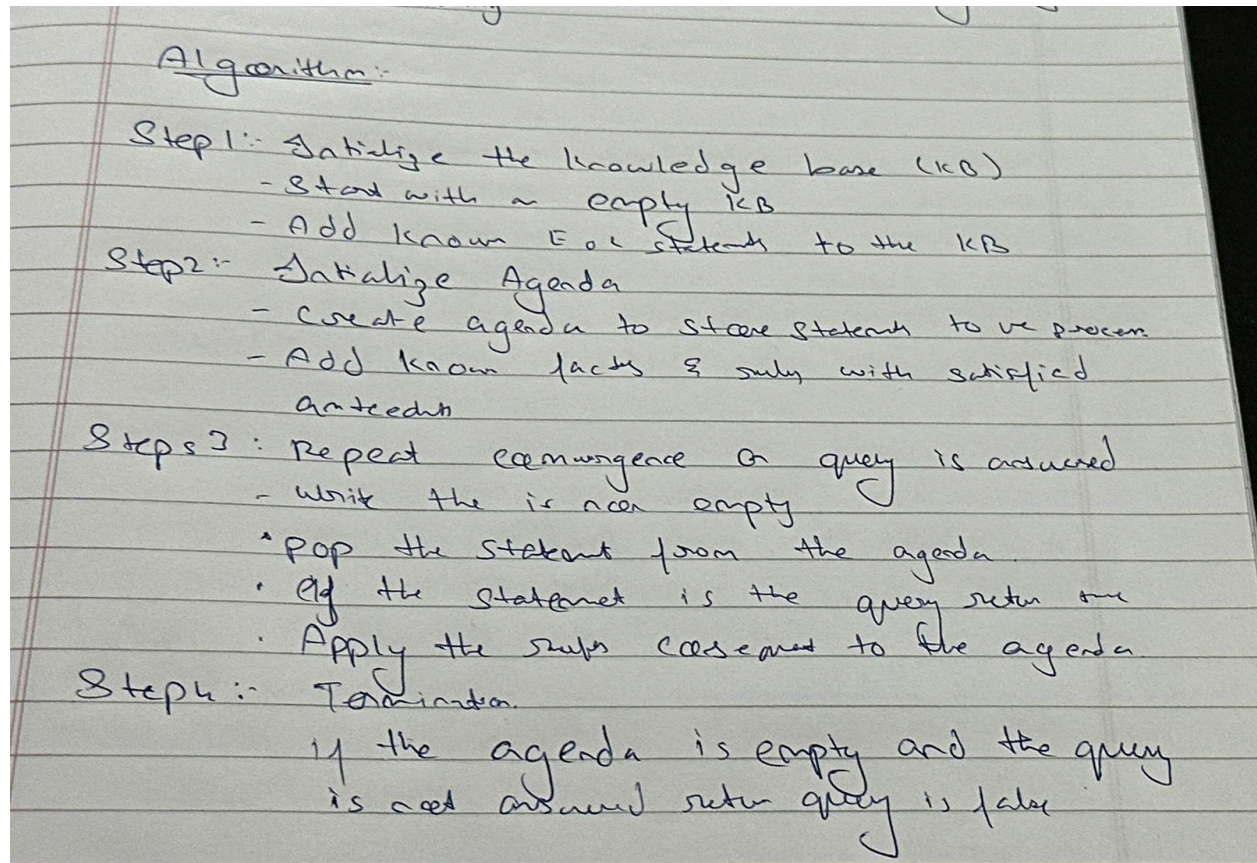 Algorithm:-
Step 1:- Initialize the knowledge base (KB)
- Start with an empty KB
- Add known FOL statements to the KB
Step 2:- Initialize Agenda
- Create agenda to store statements to be process.
- Add known facts & rules with satisfied
Steps 3: Repeat convergence or query is answered
- the is empty
• Pop the statement from the agenda.
• If the statement is the query return true
• Apply the rules to the agenda
Step 4:- Termination.
if the agenda is empty and the query
is not answered return query is false